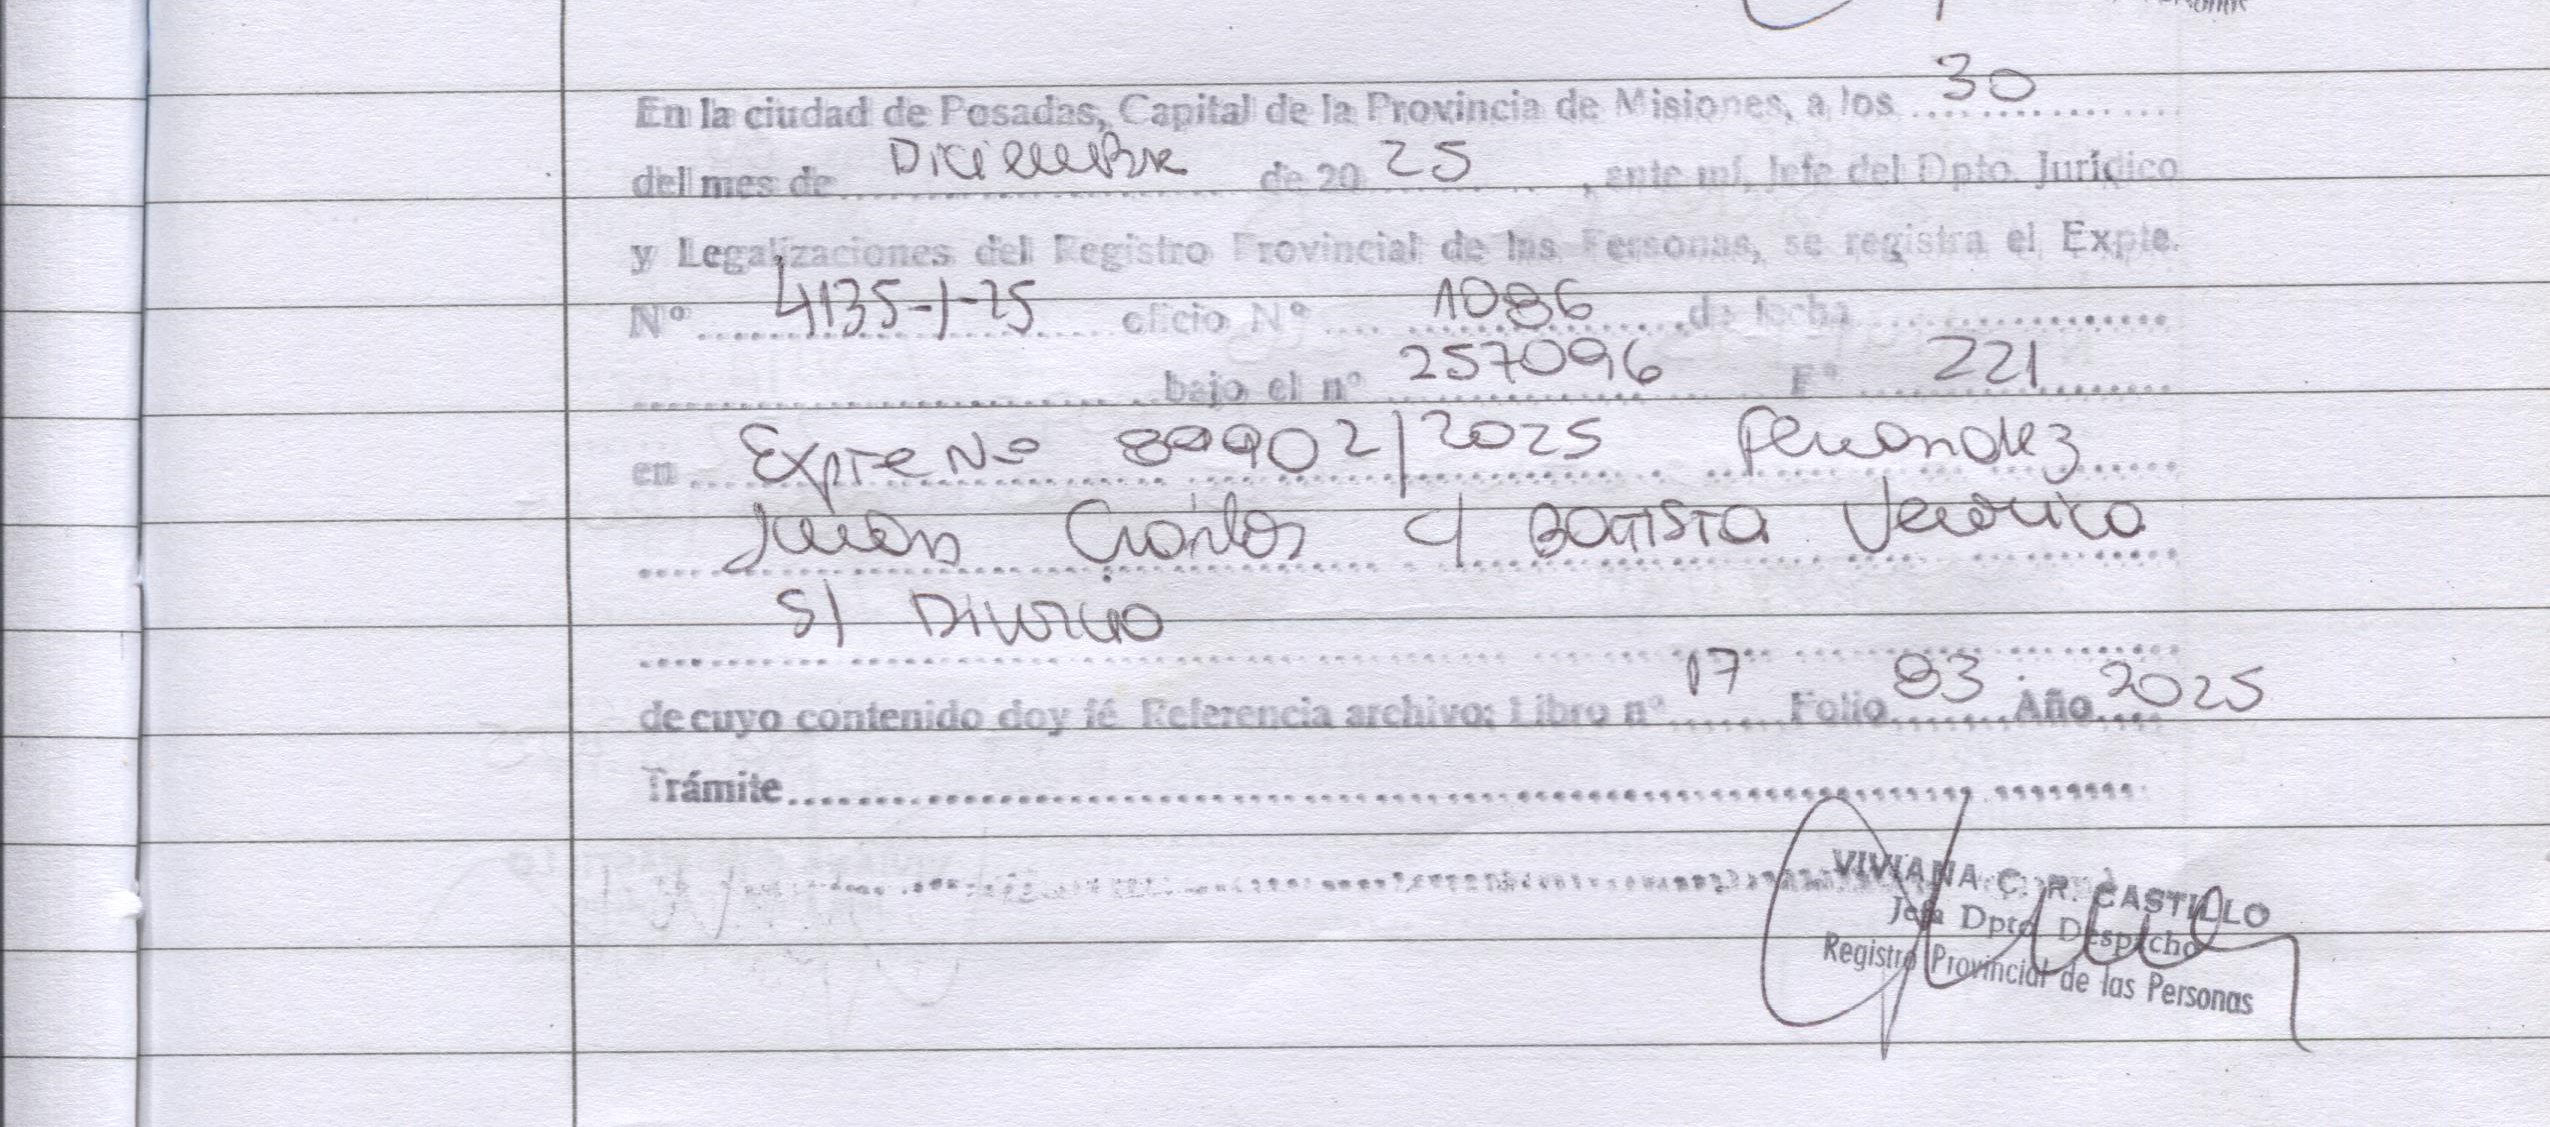 En la ciudad de Posadas, Capital de la Provincia de Misiones, a los 30
del mes de Diciembre de 20 25, ante mí, Jefe del Dpto. Jurídico
y Legalizaciones del Registro Provincial de las Personas, se registra el Expte.
Nº 4135-1-25 oficio Nº 1086 de fecha
bajo el nº 257096 Fº 221
en Expte Nº 89902/2025 Fernandez
Juan Carlos c/ Batista Veronica
S/ Divorcio
de cuyo contenido doy fé Referencia archivo: Libro nº 17 Folio 93 Año 2025
Trámite
VIVIANA C. R. CASTILLO
Jefa Dpto Despacho
Registro Provincial de las Personas